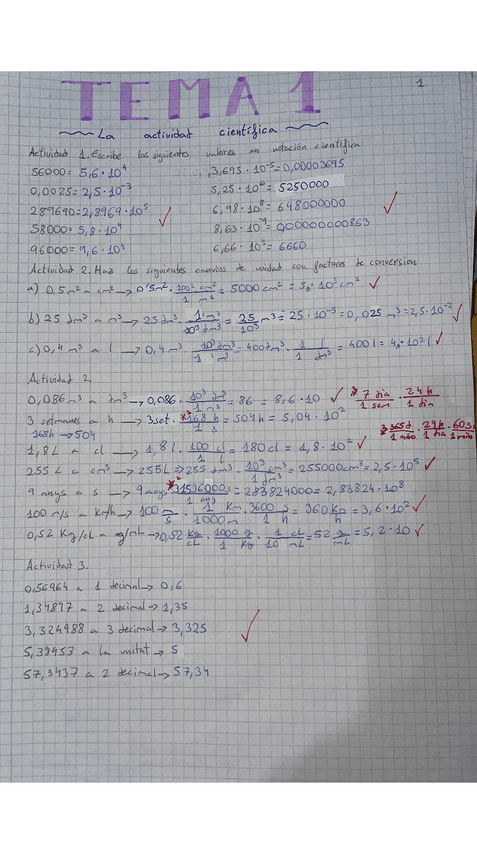 TEMA 1
1
La actividad científica
Actividad 1. Escribe los siguientes valores en notación científica
56000 = 5,6 · 10⁴ 3,695 · 10⁻⁵ = 0,00003695
0,0025 = 2,5 · 10⁻³ 5,25 · 10⁶ = 5250000
289690 = 2,8969 · 10⁵ 6,98 · 10⁸ = 698000000
58000 = 5,8 · 10⁴ 8,63 · 10⁻⁹ = 0,00000000863
96000 = 9,6 · 10³ 6,66 · 10³ = 6660
Actividad 2. Haz los siguientes canvios de unidad con factores de conversión
a) 0,5 m² a cm² → 0'5 m² · 100² cm² / 1 m² = 5000 cm² = 5 · 10³ cm²
b) 25 dm³ a m³ → 25 dm³ · 1 m³ / 10³ dm³ = 25 / 10³ m³ = 25 · 10⁻³ = 0,025 m³ = 2,5 · 10⁻²
c) 0,4 m³ a l → 0,4 m³ · 10³ dm³ / 1 m³ = 400 dm³ · 1 l / 1 dm³ = 400 l = 4 · 10² l
Actividad 2.
0,086 m³ a dm³ → 0,086 · 10³ dm³ / 1 m³ = 86 = 8,6 · 10 * 7 dia / 1 sem · 24 h / 1 dia
3 setmanes a h → 3 set · 168 h / 1 s = 504 h = 5,04 · 10²
168h → 504 365d / 1 año · 24 h / 1 dia · 60 s
1,8 L a cl → 1,8 l · 100 cl / 1 l = 180 cl = 1,8 · 10²
255 L a cm³ → 255 L ⇒ 255 dm³ · 10³ cm³ / 1 dm³ = 255000 cm³ = 2,5 · 10⁵
9 anys a s → 9 anys · 31536000 s / 1 any = 283824000 = 2,83824 · 10⁸
100 m/s a km/h → 100 m / s · 1 Km / 1000 m · 3600 s / 1 h = 360 Km / h = 3,6 · 10²
0,52 Kg/cL a g/mL → 0,52 Kg / cL · 1000 g / 1 Kg · 1 cL / 10 mL = 52 g / mL = 5,2 · 10
Actividad 3.
0,56964 a 1 decimal → 0,6
1,34897 a 2 decimal → 1,35
3,324988 a 3 decimal → 3,325
5,38453 a la unitat → 5
57,3437 a 2 decimal → 57,34